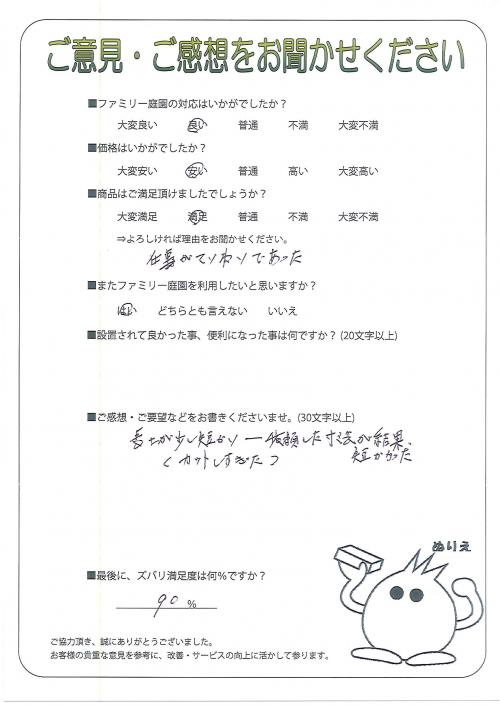 ご意見・ご感想をお聞かせください
■ファミリー庭園の対応はいかがでしたか？
大変良い 良い 普通 不満 大変不満
■価格はいかがでしたか？
大変安い 安い 普通 高い 大変高い
■商品はご満足頂けましたでしょうか？
大変満足 満足 普通 不満 大変不満
⇒よろしければ理由をお聞かせください。
仕事がていねいであった
■またファミリー庭園を利用したいと思いますか？
はい どちらとも言えない いいえ
■設置されて良かった事、便利になった事は何ですか？(20文字以上)
■ご感想・ご要望などをお書きくださいませ。(30文字以上)
が少し短かい ー 依頼した寸法が結果、
(カットしすぎた) 短かかった
ぬりえ
■最後に、ズバリ満足度は何%ですか？
90 %
ご協力頂き、誠にありがとうございました。
お客様の貴重な意見を参考に、改善・サービスの向上に活かして参ります。